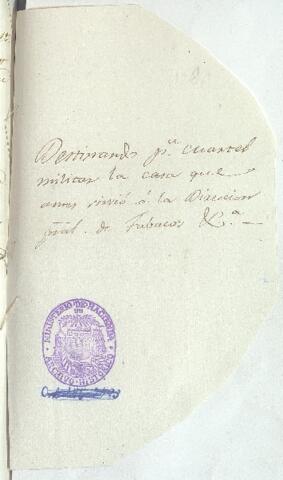 Destinando p.ª cuartel
militar la casa que
antes sirvió á la Direccion
gral. de Tabacos &.ª
MINISTERIO DE HACIENDA
ARCHIVO-HISTORICO